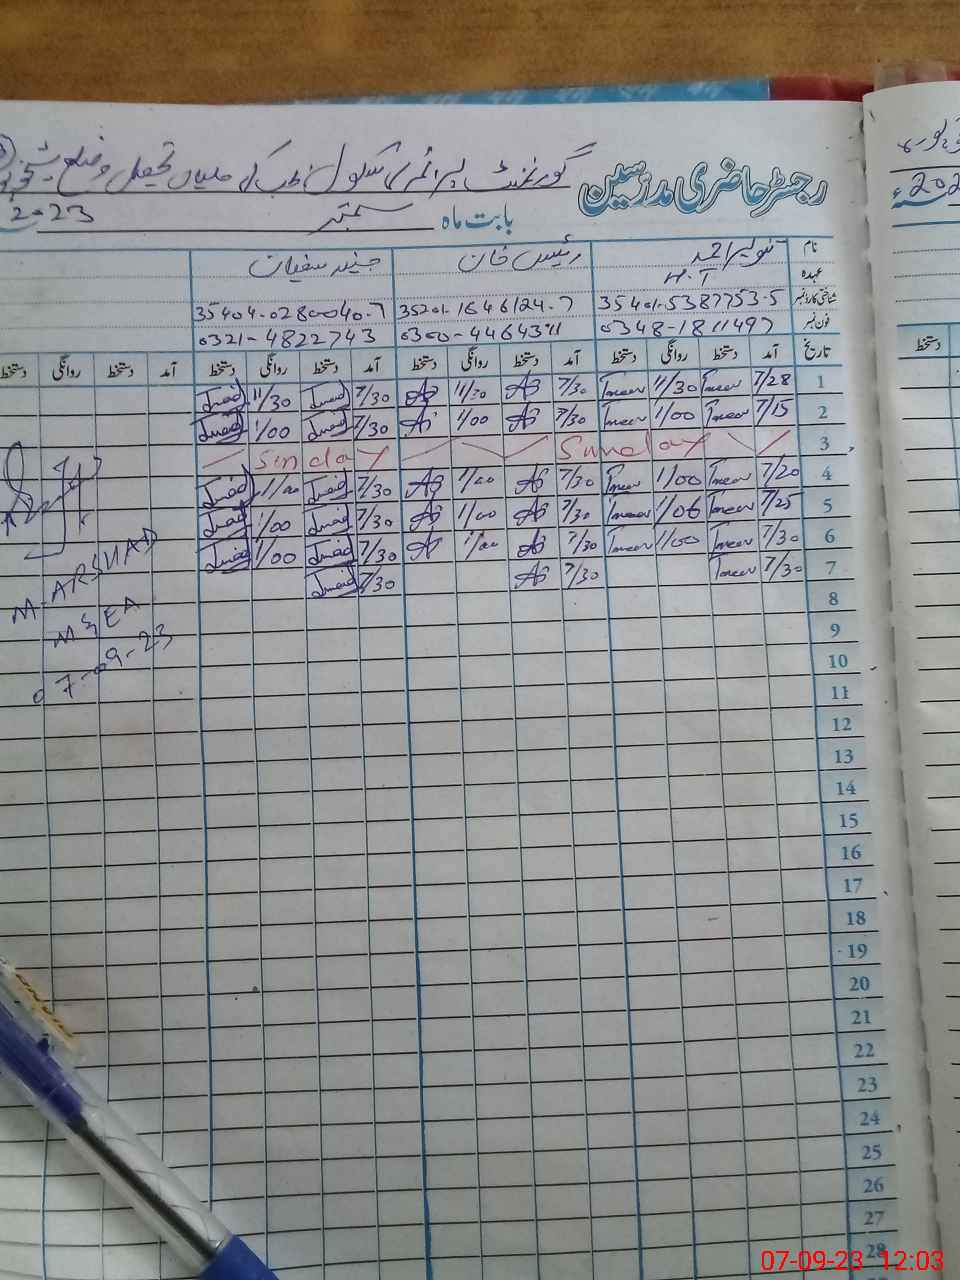 رجسٹر حاضری مدرسین گورنمنٹ پرائمری سکول
بابت ماہ ستمبر 2023
نام تنویر احمد رئیس خان جنید سفیان
عہدہ H.T
شناختی کارڈ نمبر 35401-5387753-5 35201-1646124-7 35404-0280040-7
فون نمبر 0348-1811497 0300-4464311 0321-4822743
تاریخ آمد دستخط روانگی دستخط آمد دستخط روانگی دستخط آمد دستخط روانگی دستخط آمد دستخط روانگی دستخط
1 7/28 11/30 7/30 11/30 7/30 Junaid 11/30 Junaid
2 7/15 1/00 7/30 1/00 7/30 Junaid 1/00 Junaid
3 Sunday Sunday
4 7/20 1/00 7/30 1/00 7/30 Junaid 1/00 Junaid
5 7/25 1/06 7/30 1/00 7/30 Junaid 1/00 Junaid
6 7/30 1/00 7/30 1/00 7/30 Junaid 1/00 Junaid
7 7/30 7/30 7/30 Junaid
8
9
10
11
12
13
14
15
16
17
18
19
20
21
22
23
24
25
26
27
28
M-ARSHAD
MEA
07-09-23
دستخط
07-09-23 12:03